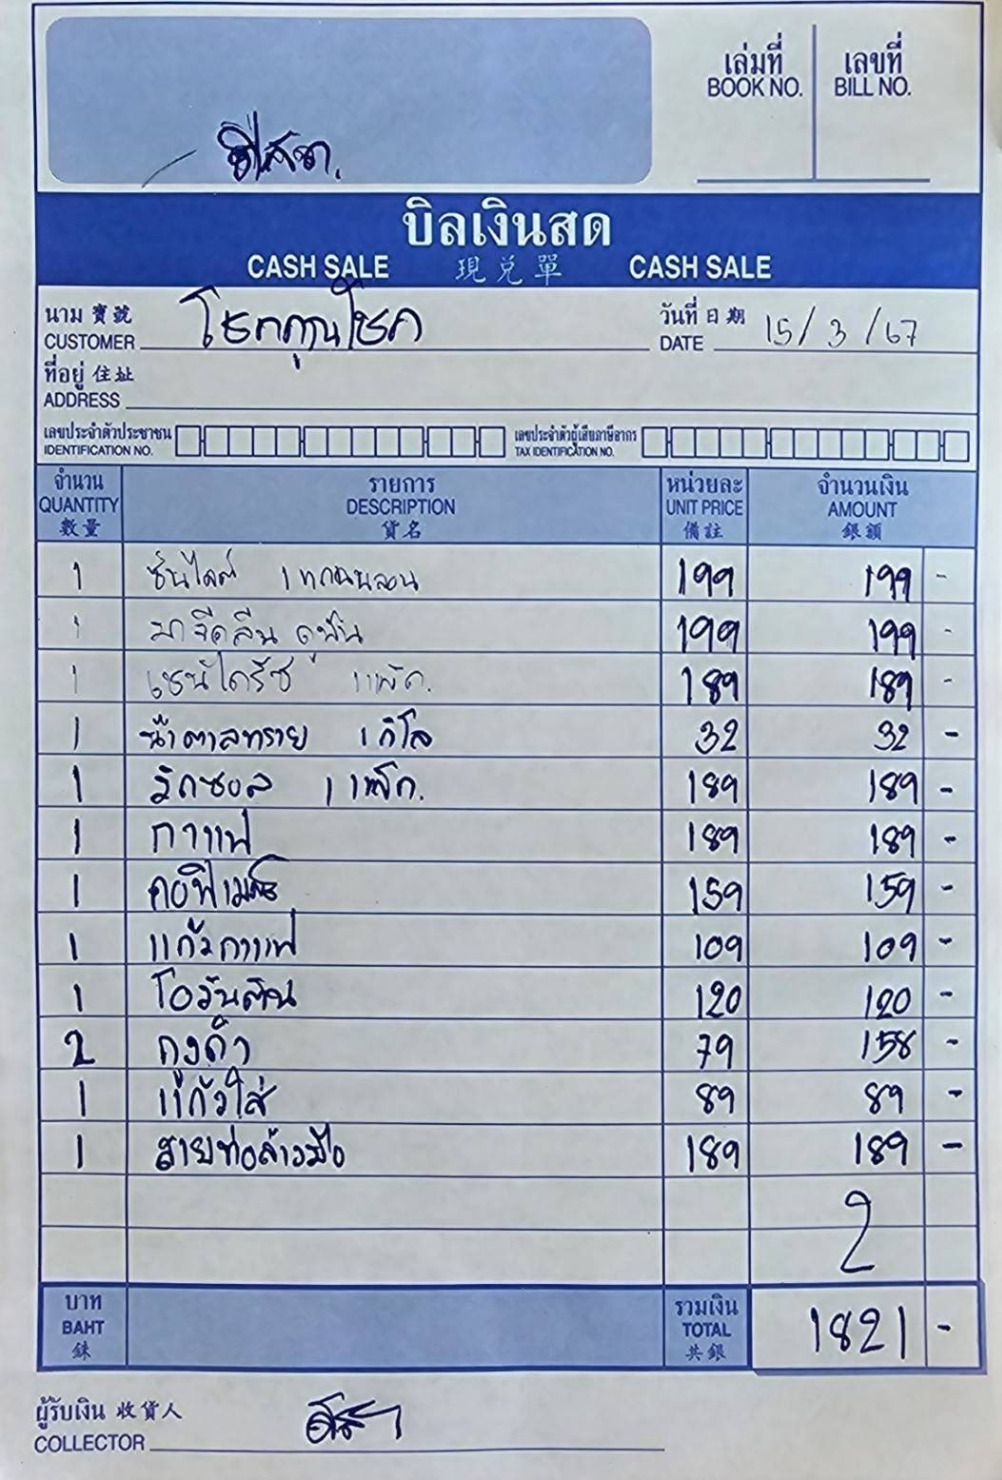 เล่มที่ เลขที่
BOOK NO. BILL NO.
บิลเงินสด
CASH SALE 現兑單 CASH SALE
นาม 寶號 โชคคุณโชค วันที่ 日期 15/3/67
CUSTOMER DATE
ที่อยู่ 住址
ADDRESS
เลขประจำตัวประชาชน เลขประจำตัวผู้เสียภาษีอากร
IDENTIFICATION NO. TAX IDENTIFICATION NO.
จำนวน รายการ หน่วยละ จำนวนเงิน
QUANTITY DESCRIPTION UNIT PRICE AMOUNT
數量 貨名 備註 銀額
1 ซันไลต์ 1 199 199 -
1 มาจีคลีน 199 199 -
1 1 แพ็ค. 189 189 -
1 น้ำตาลทราย 1 กิโล 32 32 -
1 วิกซอล 1 แพ็ค. 189 189 -
1 กาแฟ 189 189 -
1 คอฟฟี่เมต 159 159 -
1 แก้วกาแฟ 109 109 -
1 โอวันติน 120 120 -
2 ถุงดำ 79 158 -
1 แก้วใส่ 89 89 -
1 สายท่อล้างมือ 189 189 -
2
บาท รวมเงิน
BAHT TOTAL 1821 -
銖 共銀
ผู้รับเงิน 收貨人
COLLECTOR